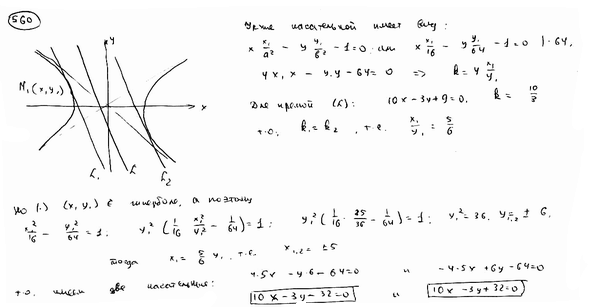 560
y
x
M₁(x₁y₁)
L₁ L L₂
Ур-ие касательной имеет вид:
x x₁/a² - y y₁/b² - 1 = 0 или x x₁/16 - y y₁/64 - 1 = 0 | · 64,
4x₁x - y₁y - 64 = 0 => k = 4 x₁/y₁
Для прямой (L): 10x - 3y + 9 = 0, k = 10/3
т.о. k₁ = k₂, т.е. x₁/y₁ = 5/6
но (·) (x₁y₁) ∈ гиперболе, а поэтому
x₁²/16 - y₁²/64 = 1; y₁² (1/16 x₁²/y₁² - 1/64) = 1; y₁² (1/16 · 25/36 - 1/64) = 1; y₁² = 36. y₁,₂ = ± 6.
тогда x₁ = 5/6 y₁, т.е. x₁,₂ = ±5
т.о. имеем две касательные: 4·5x - y·6 - 64 = 0 и -4·5x + 6y - 64 = 0
10x - 3y - 32 = 0 и 10x - 3y + 32 = 0